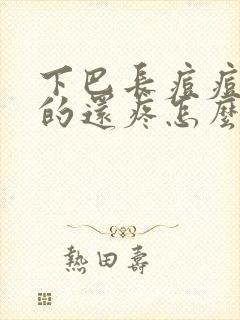 下巴長痘痘
的還疼怎麼
熱田壽